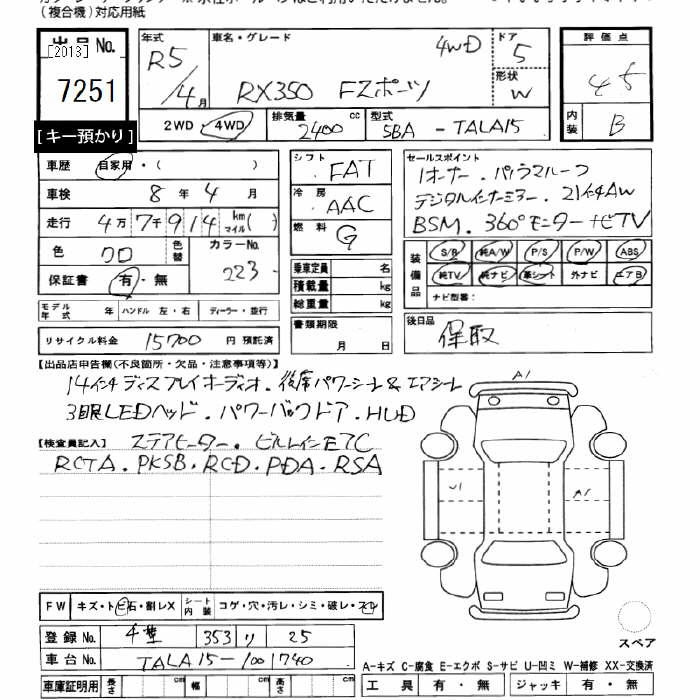 (複合機)対応用紙
出品No. [2013] 7251 [キー預かり]
年式 R5/4月 車名・グレード RX350 Fスポーツ 4WD ドア 5 形状 W
2WD・4WD 排気量 2400 cc 型式 5BA - TALA15
評価点 45
内装 B
車歴 自家用・( )
車検 8年4月
走行 4万7千914 km マイル( )
色 クロ 色替 カラーNo. 223
保証書 有・無
モデル年式 年 ハンドル 左・右 ディーラー・並行
リサイクル料金 15700 円 預託済
シフト FAT
冷房 AAC
燃料 G
乗車定員 名
積載量 kg
総重量 kg
書類期限 月 日
セールスポイント
1オーナー.パノラマルーフ
デジタルインナーミラー.21インチAW
BSM.360°モニターナビTV
装備品 S/R 純A/W P/S P/W ABS
純TV 純ナビ 革シート 外ナビ エアB
ナビ型番:
後日品 保取
【出品店申告欄(不良箇所・欠品・注意事項等)】
14インチディスプレイオーディオ.後席パワーシート&エアシート
3眼LEDヘッド.パワーバックドア.HUD
【検査員記入】 ステアヒーター.ビルトインETC
RCTA.PKSB.RCD.PDA.RSA
A1
U1 A1
FW キズ・トビ石・割レX シート内装 コゲ・穴・汚レ・シミ・破レ・スレ
スペア
登録No. 353 り 25
車台No. TALA15-1001740
A-キズ C-腐食 E-エクボ S-サビ U-凹ミ W-補修 XX-交換済
車庫証明用 長さ cm 幅 cm 高さ cm
工具 有・無 ジャッキ 有・無